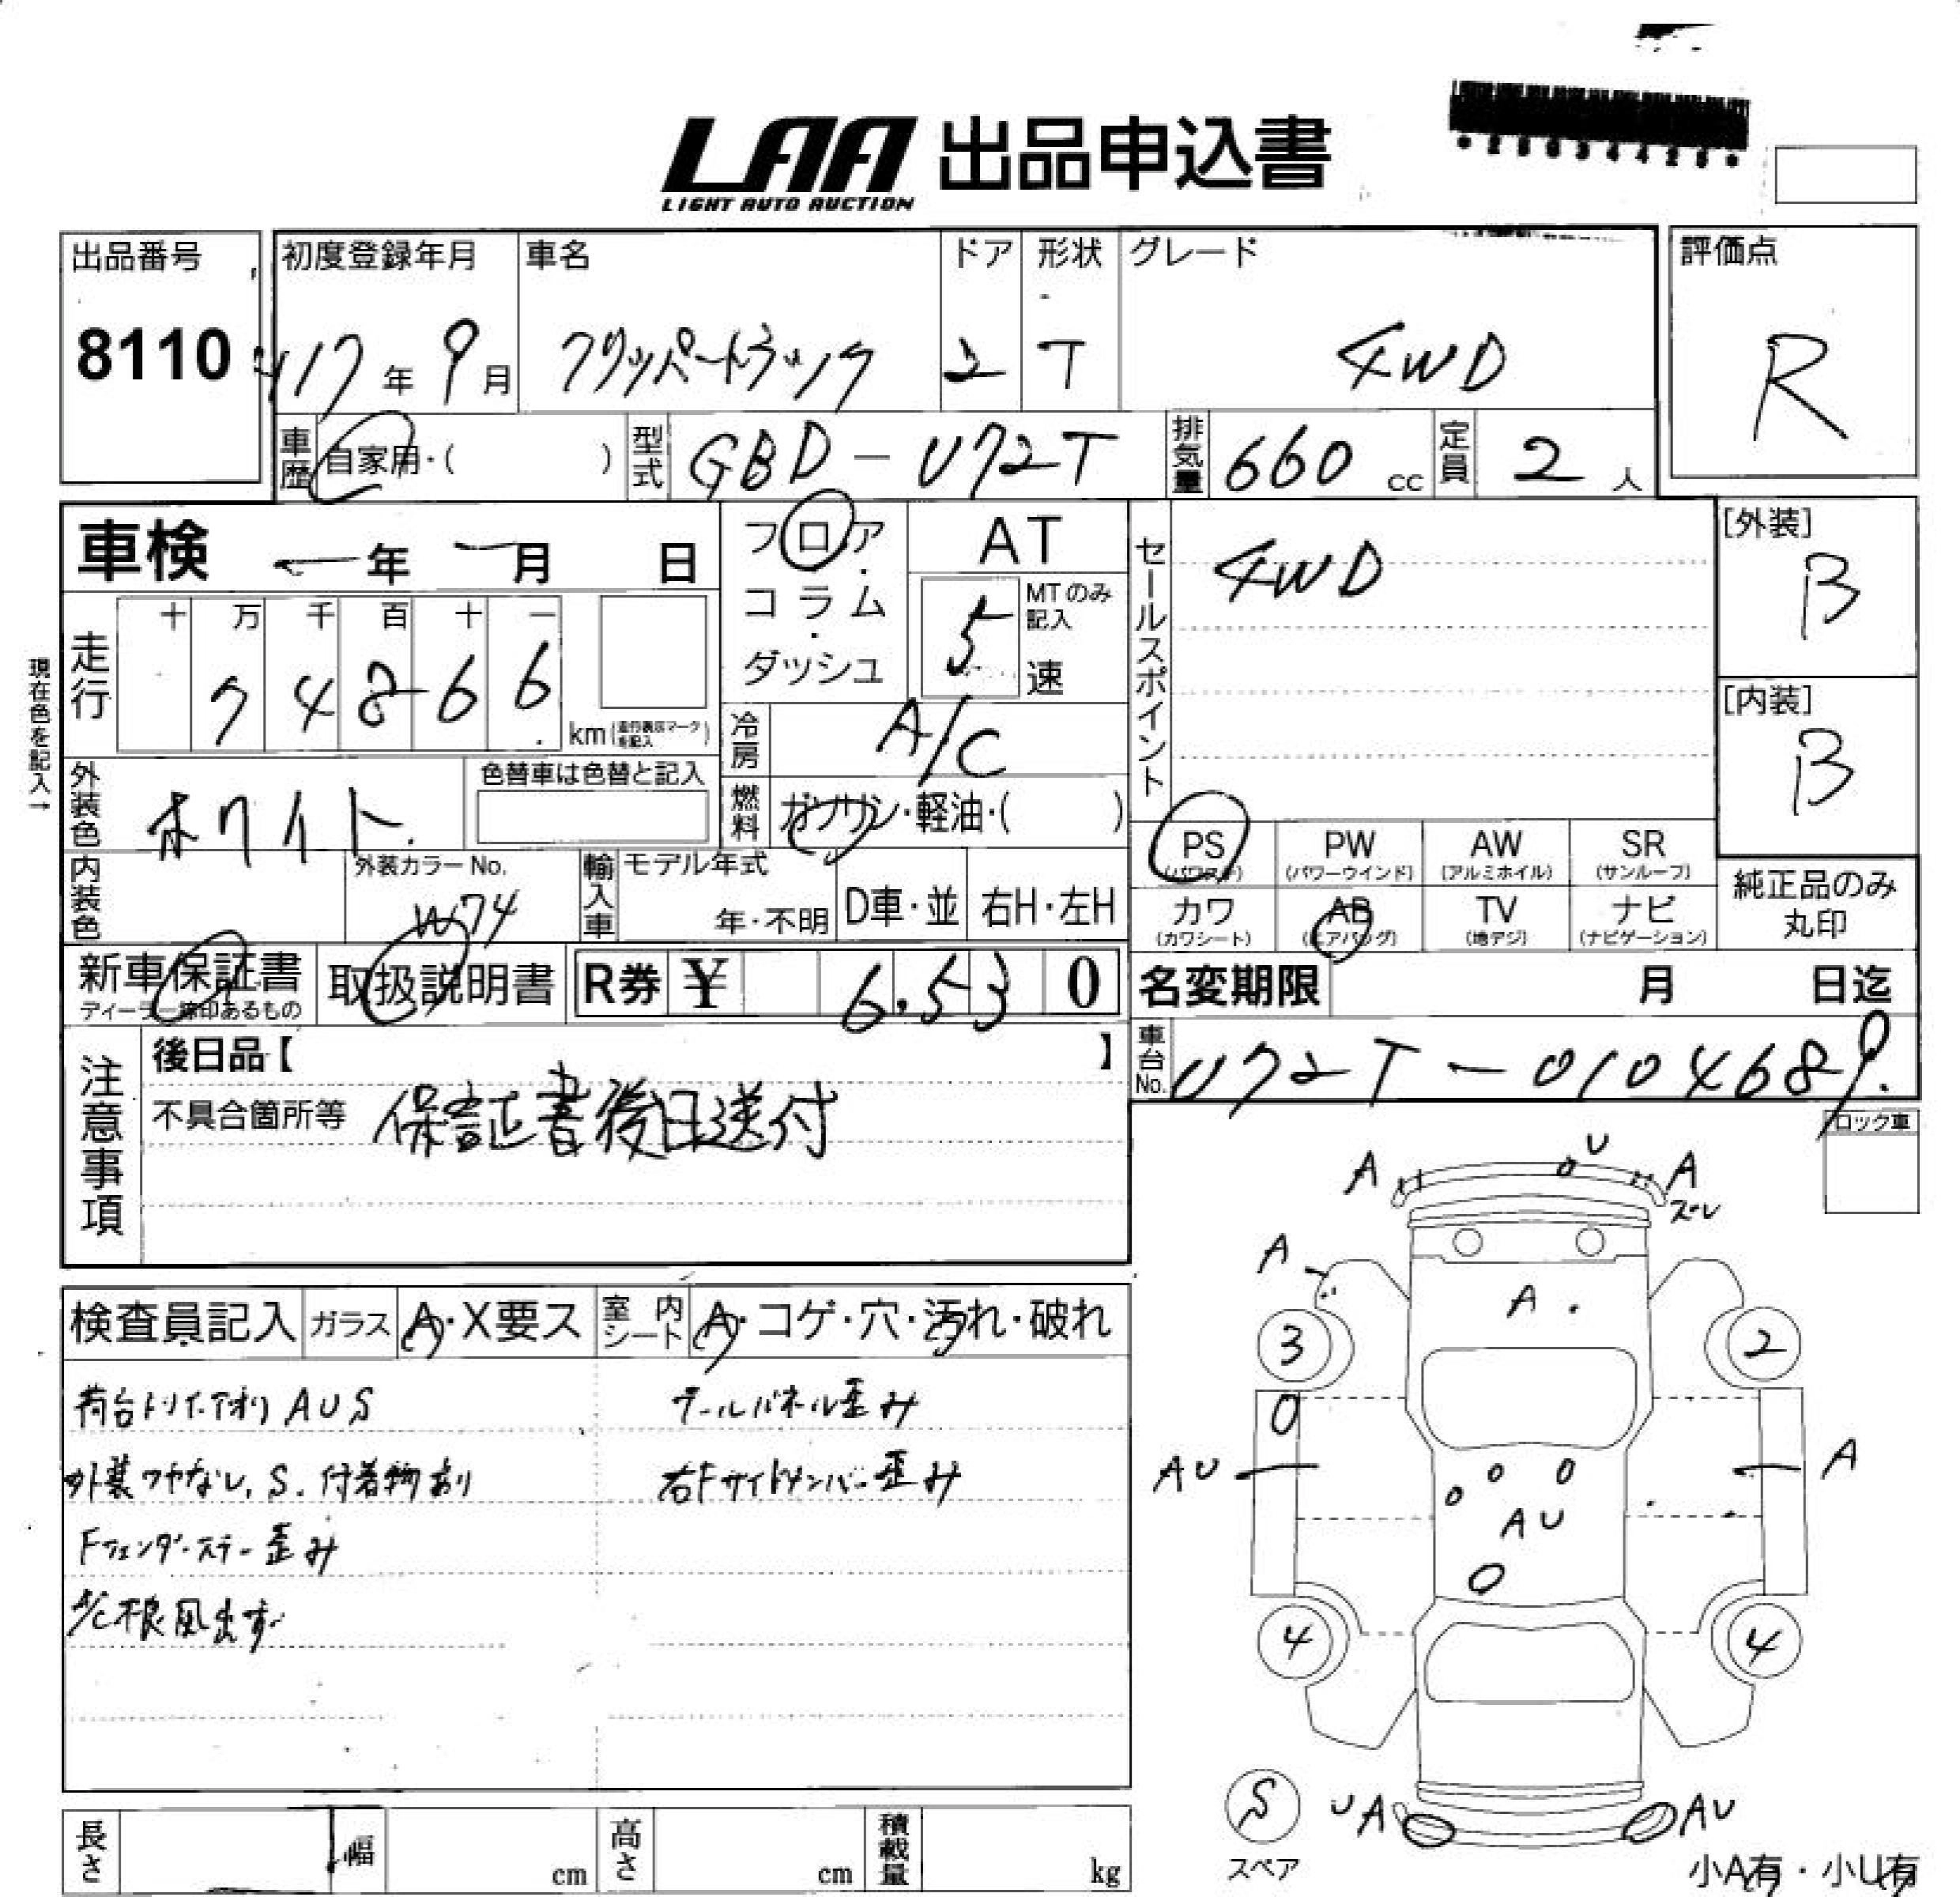 LAA 出品申込書
LIGHT AUTO AUCTION
出品番号
8110
初度登録年月
H17年 9月
車名
クリッパートラック
ドア
2
形状
T
グレード
4WD
評価点
R
車歴 自家用・( )
型式 GBD-U72T
排気量 660 cc
定員 2 人
車検 ー年 ー月 日
フロア・コラム・ダッシュ
AT
MTのみ記入
5速
セールスポイント
4WD
[外装]
B
[内装]
B
現在色を記入→
走行
十 万 千 百 十 一
7 4 8 6 6
km
冷房 A/C
外装色 ホワイト
色替車は色替と記入
燃料 ガソリン・軽油・( )
内装色
外装カラーNo.
W74
輸入車
モデル年式
年・不明
D車・並
右H・左H
PS (パワステ)
PW (パワーウインド)
AW (アルミホイル)
SR (サンルーフ)
カワ (カワシート)
AB (エアバッグ)
TV (地デジ)
ナビ (ナビゲーション)
純正品のみ
丸印
新車保証書
ディーラー捺印あるもの
取扱説明書
R券 ¥ 6,530
名変期限 月 日迄
車台No. U72T-0104689
注意事項
後日品【 】
不具合箇所等 保証書後日送付
ロック車
検査員記入
ガラス A・X要ス
室内シート A・コゲ・穴・汚れ・破れ
荷台トリイ.アオリ AUS
テールパネル歪み
外装ツヤなし, S. 付着物あり
右Fサイドメンバー歪み
Fフェンダーステー歪み
A/C不良風出ず
U
A
A
スレ
A
A
3
2
AU
A
AU
4
4
S
スペア
UA
AU
小A有・小U有
長さ
幅 cm
高さ cm
積載量 kg